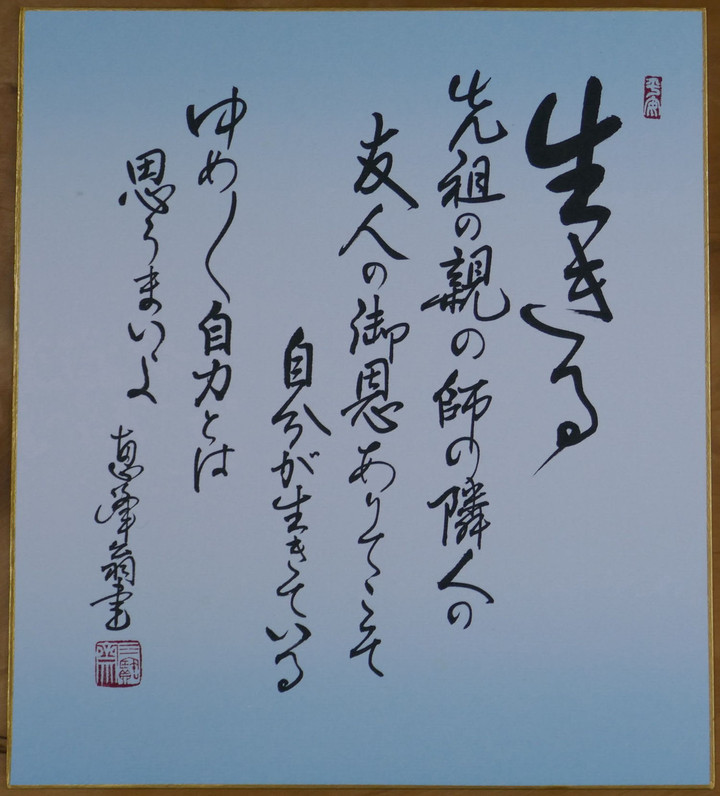 生きる
先祖の親の師の隣人の
友人の御恩ありてこそ
自分が生きている
ゆめ〱自力とは
思うまいよ
恵峰翁書